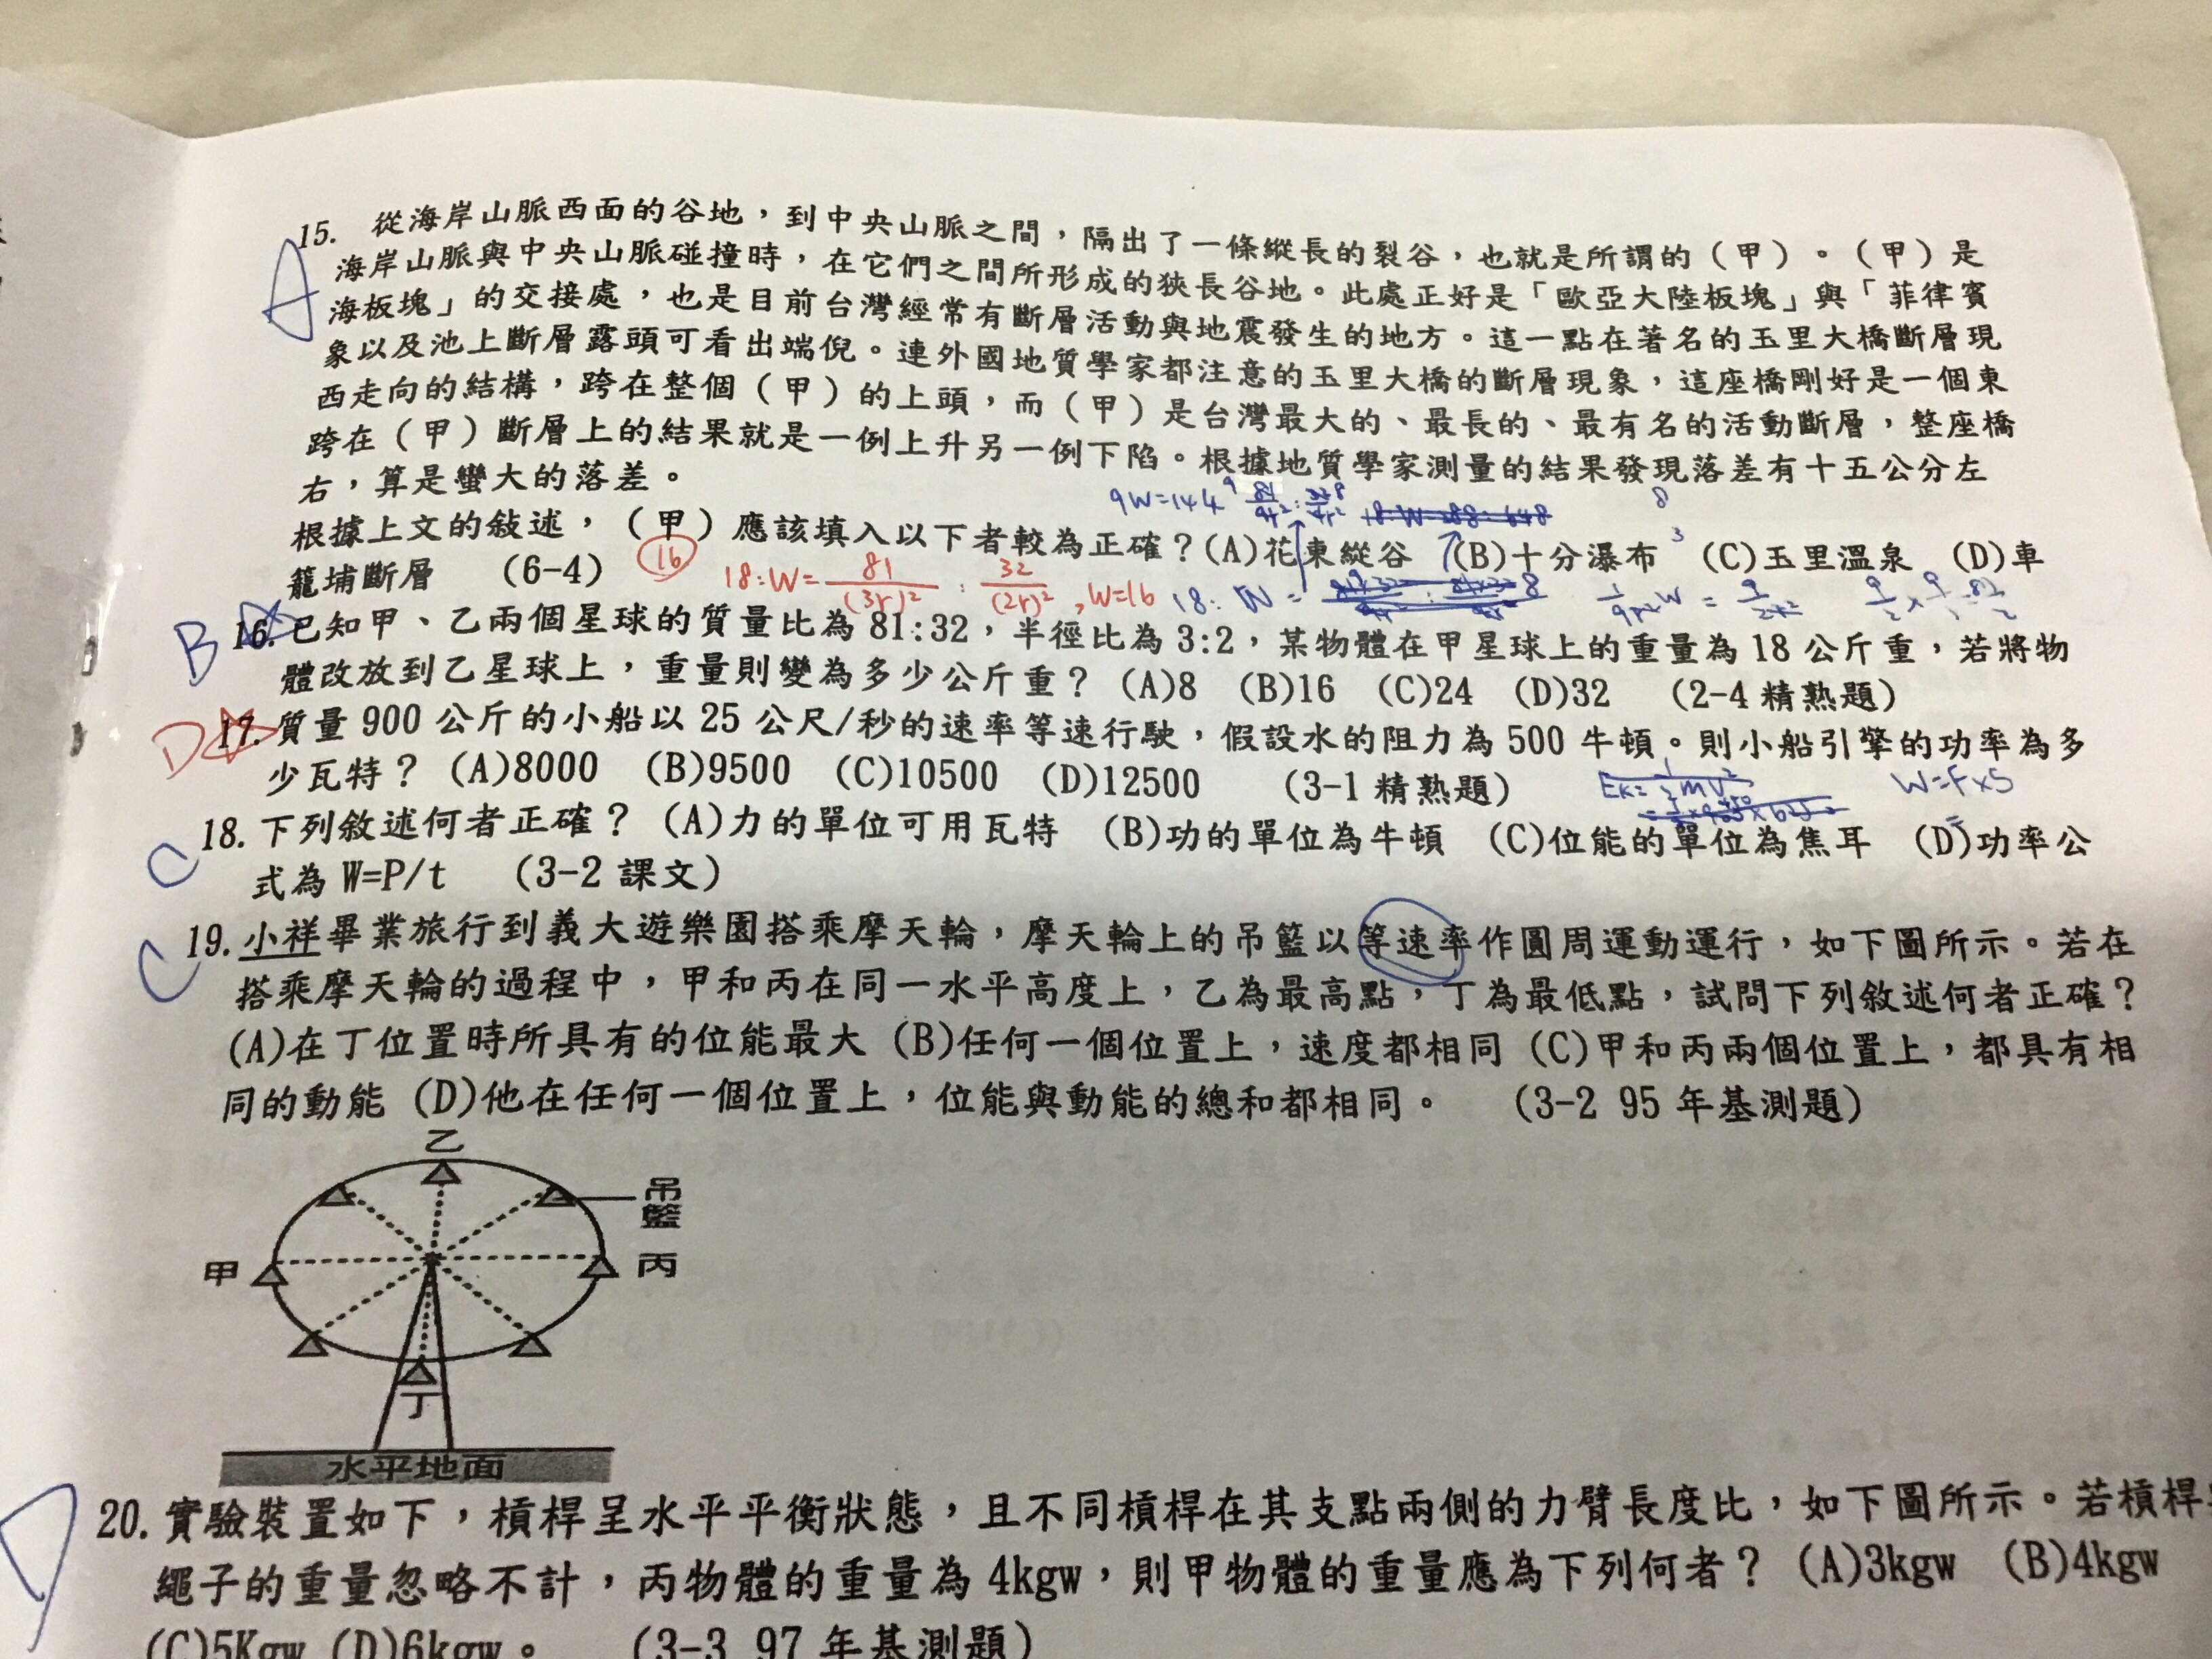 15. 從海岸山脈西面的谷地，到中央山脈之間，隔出了一條縱長的裂谷，也就是所謂的（甲）。（甲）是
海岸山脈與中央山脈碰撞時，在它們之間所形成的狹長谷地。此處正好是「歐亞大陸板塊」與「菲律賓
海板塊」的交接處，也是目前台灣經常有斷層活動與地震發生的地方。這一點在著名的玉里大橋斷層現
象以及池上斷層露頭可看出端倪。連外國地質學家都注意的玉里大橋的斷層現象，這座橋剛好是一個東
西走向的結構，跨在整個（甲）的上頭，而（甲）是台灣最大的、最長的、最有名的活動斷層，整座橋
跨在（甲）斷層上的結果就是一例上升另一例下陷。根據地質學家測量的結果發現落差有十五公分左
右，算是蠻大的落差。
A
9W=144
根據上文的敍述，（甲）應該填入以下者較為正確？(A)花東縱谷 (B)十分瀑布 (C)玉里溫泉 (D)車
籠埔斷層 (6-4)
16
18:W= 81/(3r)² : 32/(2r)² , W=16
18: W =
B 16. 已知甲、乙兩個星球的質量比為 81:32，半徑比為 3:2，某物體在甲星球上的重量為 18 公斤重，若將物
體改放到乙星球上，重量則變為多少公斤重？ (A)8 (B)16 (C)24 (D)32 (2-4 精熟題)
D 17. 質量 900 公斤的小船以 25 公尺/秒的速率等速行駛，假設水的阻力為 500 牛頓。則小船引擎的功率為多
少瓦特？ (A)8000 (B)9500 (C)10500 (D)12500 (3-1 精熟題)
W=F×S
C 18. 下列敍述何者正確？ (A)力的單位可用瓦特 (B)功的單位為牛頓 (C)位能的單位為焦耳 (D)功率公
式為 W=P/t (3-2 課文)
C 19. 小祥畢業旅行到義大遊樂園搭乘摩天輪，摩天輪上的吊籃以等速率作圓周運動運行，如下圖所示。若在
搭乘摩天輪的過程中，甲和丙在同一水平高度上，乙為最高點，丁為最低點，試問下列敍述何者正確？
(A)在丁位置時所具有的位能最大 (B)任何一個位置上，速度都相同 (C)甲和丙兩個位置上，都具有相
同的動能 (D)他在任何一個位置上，位能與動能的總和都相同。 (3-2 95 年基測題)
乙
吊籃
甲
丙
丁
水平地面
D 20. 實驗裝置如下，槓桿呈水平平衡狀態，且不同槓桿在其支點兩側的力臂長度比，如下圖所示。若槓桿
繩子的重量忽略不計，丙物體的重量為 4kgw，則甲物體的重量應為下列何者？ (A)3kgw (B)4kgw
(C)5Kgw (D)6kgw。 (3-3 97 年基測題)